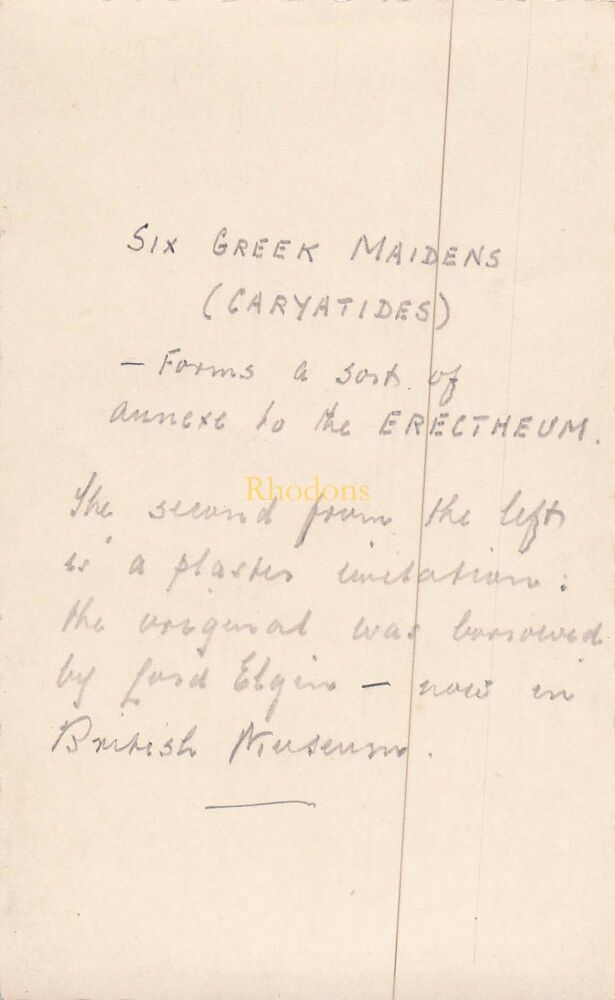 SIX GREEK MAIDENS
(CARYATIDES)
— Forms a sort of
annexe to the ERECTHEUM.
Rhodons
The second from the left
is a plaster imitation:
the original was borrowed
by Lord Elgin — now in
British Museum.